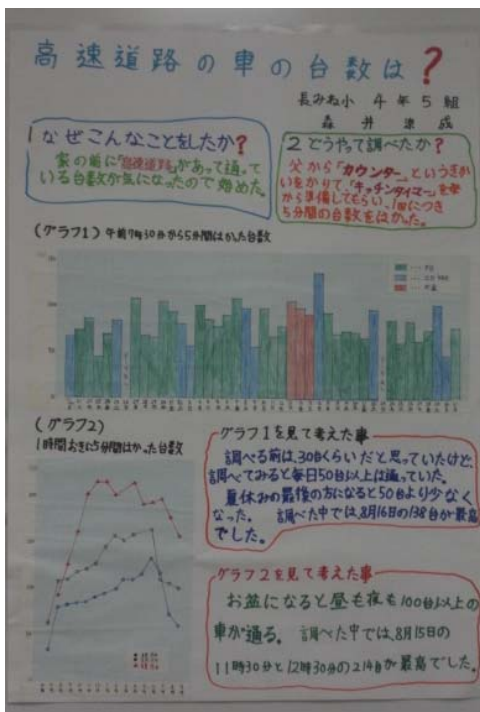 高速道路の車の台数は?
長みね小 4年5組
森井
1 なぜこんなことをしたか?
家の前に「高速道路」があって通って
いる台数が気になったので始めた。
2 どうやって調べたか?
父から「カウンター」というきか
いをかりて、「キッチンタイマー」を母
から準備してもらい、1回につき
5分間の台数をはかった。
(グラフ1) 午前7時30分から5分間はかった台数
(グラフ2)
1時間おきに5分間はかった台数
グラフ1を見て考えた事
調べる前は、30台くらいだと思っていたけど、
調べてみると毎日50台以上は通っていた。
夏休みの最後の方になると50台より少なく
なった。 調べた中では、8月16日の138台が最高
でした。
グラフ2を見て考えた事
お盆になると昼も夜も100台以上の
車が通る。 調べた中では、8月15日の
11時30分と12時30分の214台が最高でした。